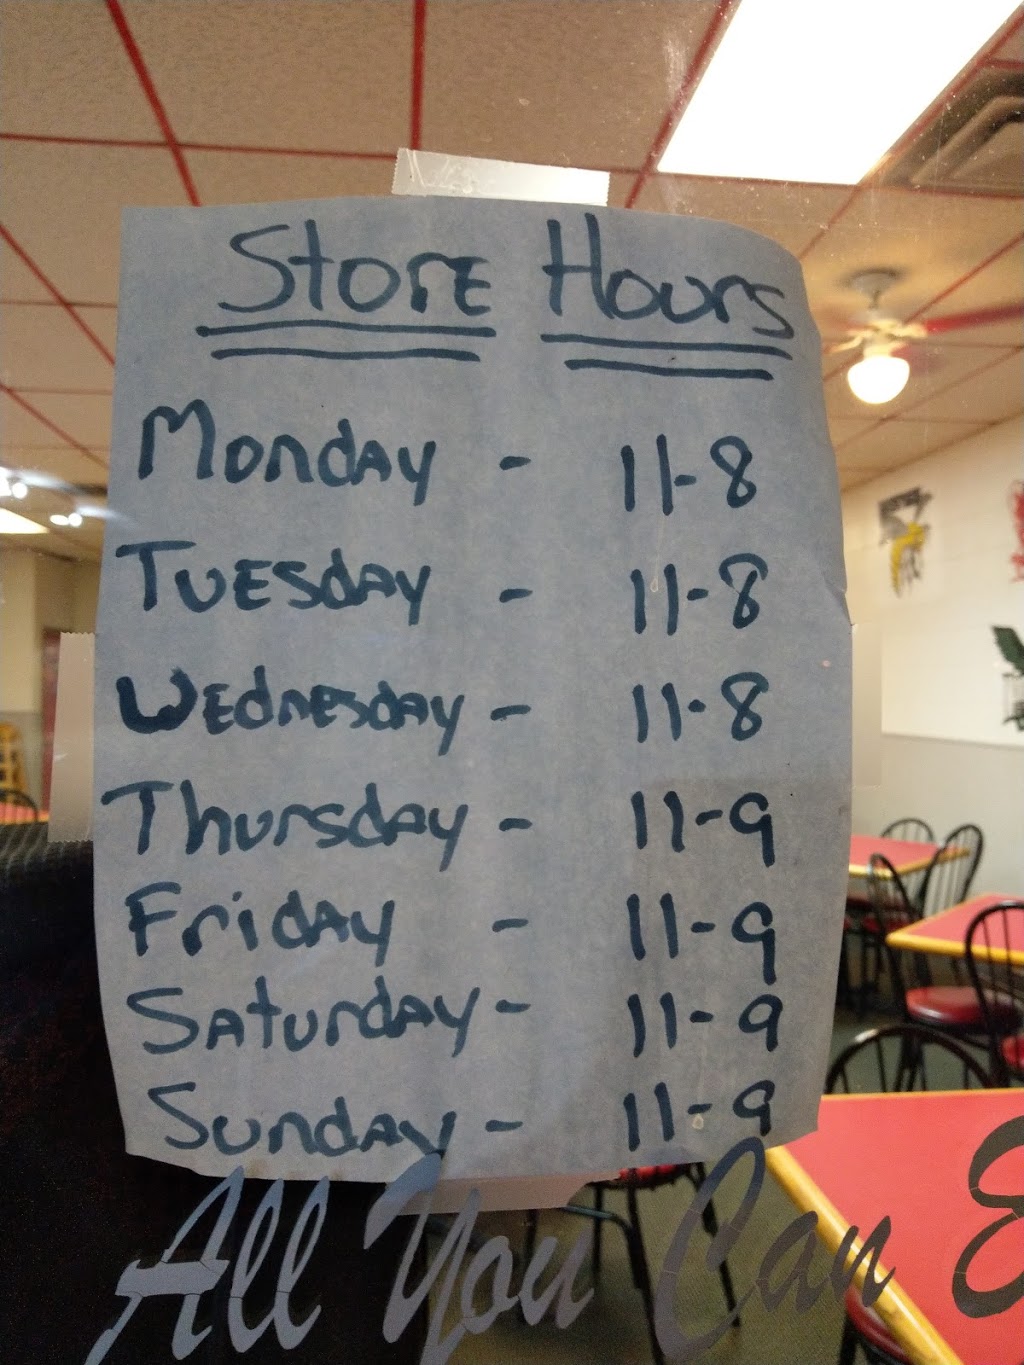 Store Hours
Monday - 11-8
Tuesday - 11-8
Wednesday - 11-8
Thursday - 11-9
Friday - 11-9
Saturday - 11-9
Sunday - 11-9
All You Can E